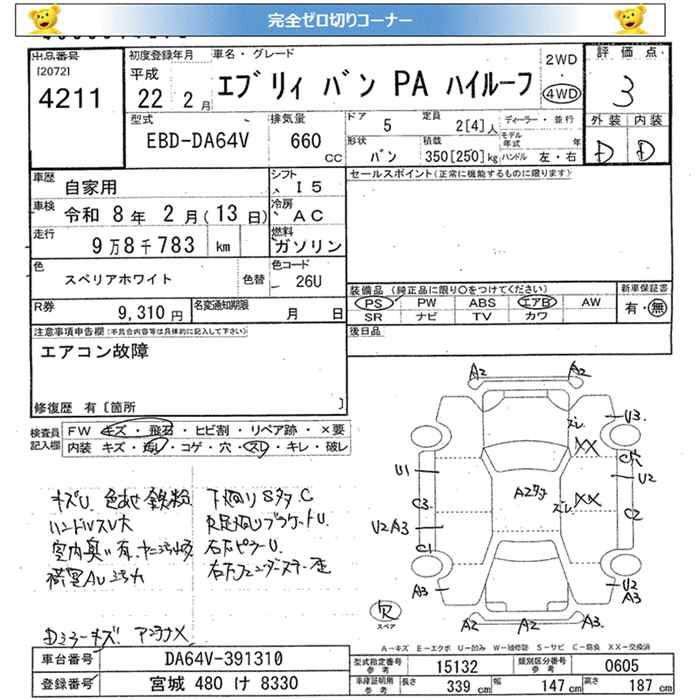 完全ゼロ切りコーナー
出品番号 初度登録年月 車名・グレード 2WD ・ 4WD 評価点
[2072] 平成
4211 22 2月 エブリィ バン PA ハイルーフ 3
型式 排気量 ドア 5 定員 2[4]人 ディーラー・並行 外装 内装
EBD-DA64V 660 CC 形状 バン 積載 350[250]kg モデル年式 年 ハンドル 左・右 D D
車歴 自家用 シフト I5 セールスポイント(正常に機能するものに限ります)
車検 令和 8年 2月(13日) 冷房 AC
走行 9万8千783 km 燃料 ガソリン
色 スペリアホワイト 色替 色コード 26U
装備品(純正品に限り○をつけてください) 新車保証書
PS PW ABS エアB AW 有・無
SR ナビ TV カワ
R券 9,310円 名変通知期限 月 日
後日品
注意事項申告欄(不具合内容等は具体的に記入して下さい)
エアコン故障
修復歴 有[箇所 ]
検査員記入欄 FW キズ・飛石・ヒビ割・リペア跡・×要
内装 キズ・・コゲ・穴・スレ・キレ・破レ
キズU 色あせ 鉄粉 下廻りSタタC
ハンドルスレ大
室内臭い有
右左ピラーU
Dミラーキズ アンテナX
A2 A2
U3
スレ XX
C穴
U1 U2
A2
C3 スレ XX
C2
U2 A3
C1
A3 U2
A3
A2 A2 A2
欠
スペア
A-キズ E-エクボ U-凹み W-補修跡 S-サビ C-腐食 XX-交換済
車台番号 DA64V-391310 型式指定番号 参考 15132 類別区分番号 参考 0605
登録番号 宮城 480 け 8330 車庫証明用 参考 長さ 339 cm 幅 147 cm 高さ 187 cm